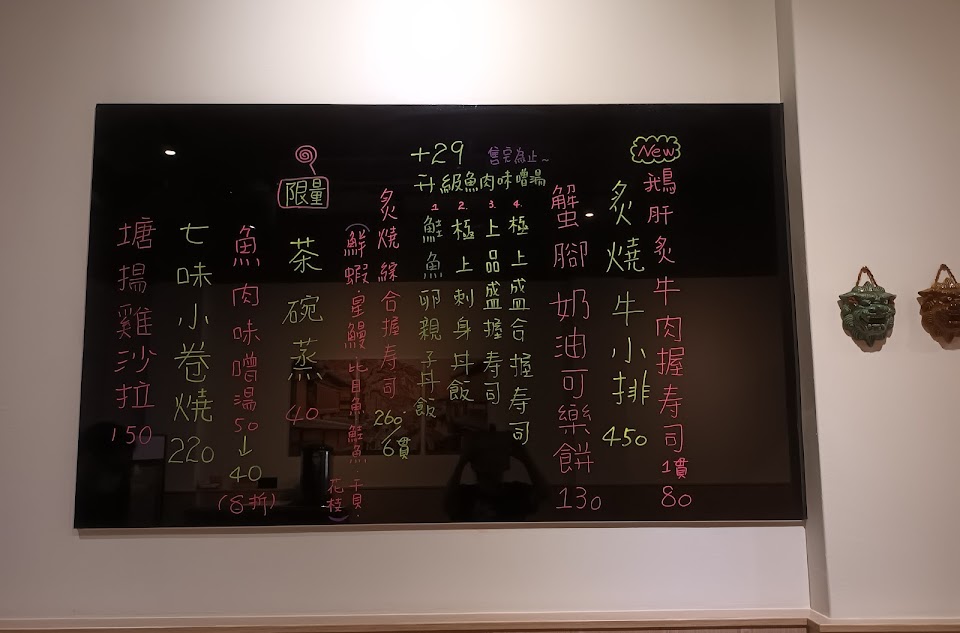 New
鵝肝炙牛肉握寿司1貫80
炙燒牛小排450
蟹腳奶油可樂餅130
+29 售完為止~
升級魚肉味噌湯
4.極上盛合握寿司
3.上品盛握寿司
2.極上刺身丼飯
1.鮭魚卵親子丼飯
炙燒綜合握寿司260/6貫
(鮮蝦.星鰻.比目魚.鮭魚.干貝.
花枝)
限量
茶碗蒸40
魚肉味噌湯50↓40
(8折)
七味小卷燒220
塘揚雞沙拉150